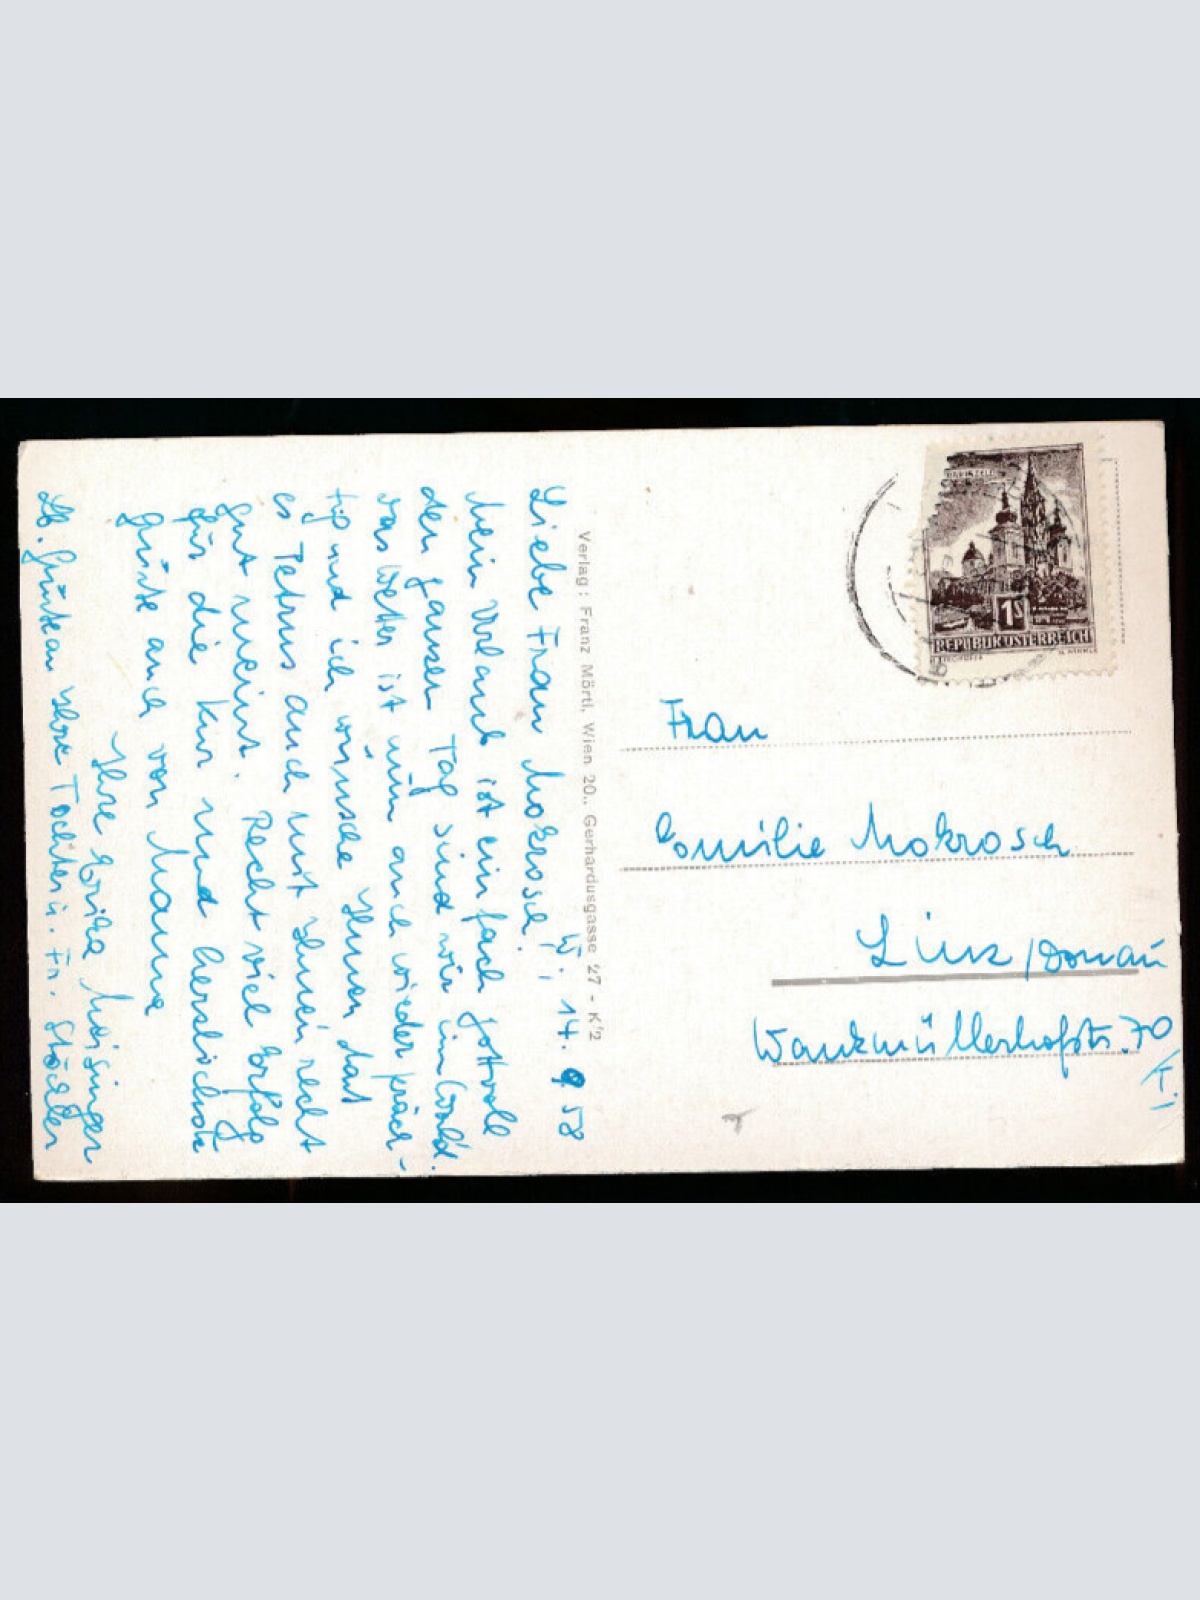 W., 14. 9 58
Liebe Frau Mokrosch!
Mein Urlaub ist einfach gottvoll
den ganzen Tag sind wir im Wald.
Das Wetter ist nun auch wieder präch-
tig und ich wünsche Ihnen daß
es Petrus auch mit Ihnen recht
gut meint. Recht viel Erfolg
für die Kur und herzlichste
Grüße auch von Mama
Ihre Erika Meisinger
Lb. Grüße an Ihre Tochter u. Fr. Stöckler
Verlag: Franz Mörtl, Wien 20., Gerhardusgasse 27 - K'2
MARIAZELL
1S
REPUBLIK ÖSTERREICH
Frau
Emilie Mokrosch
Linz/Donau
Wankmüllerhofstr. 70
/K. 1